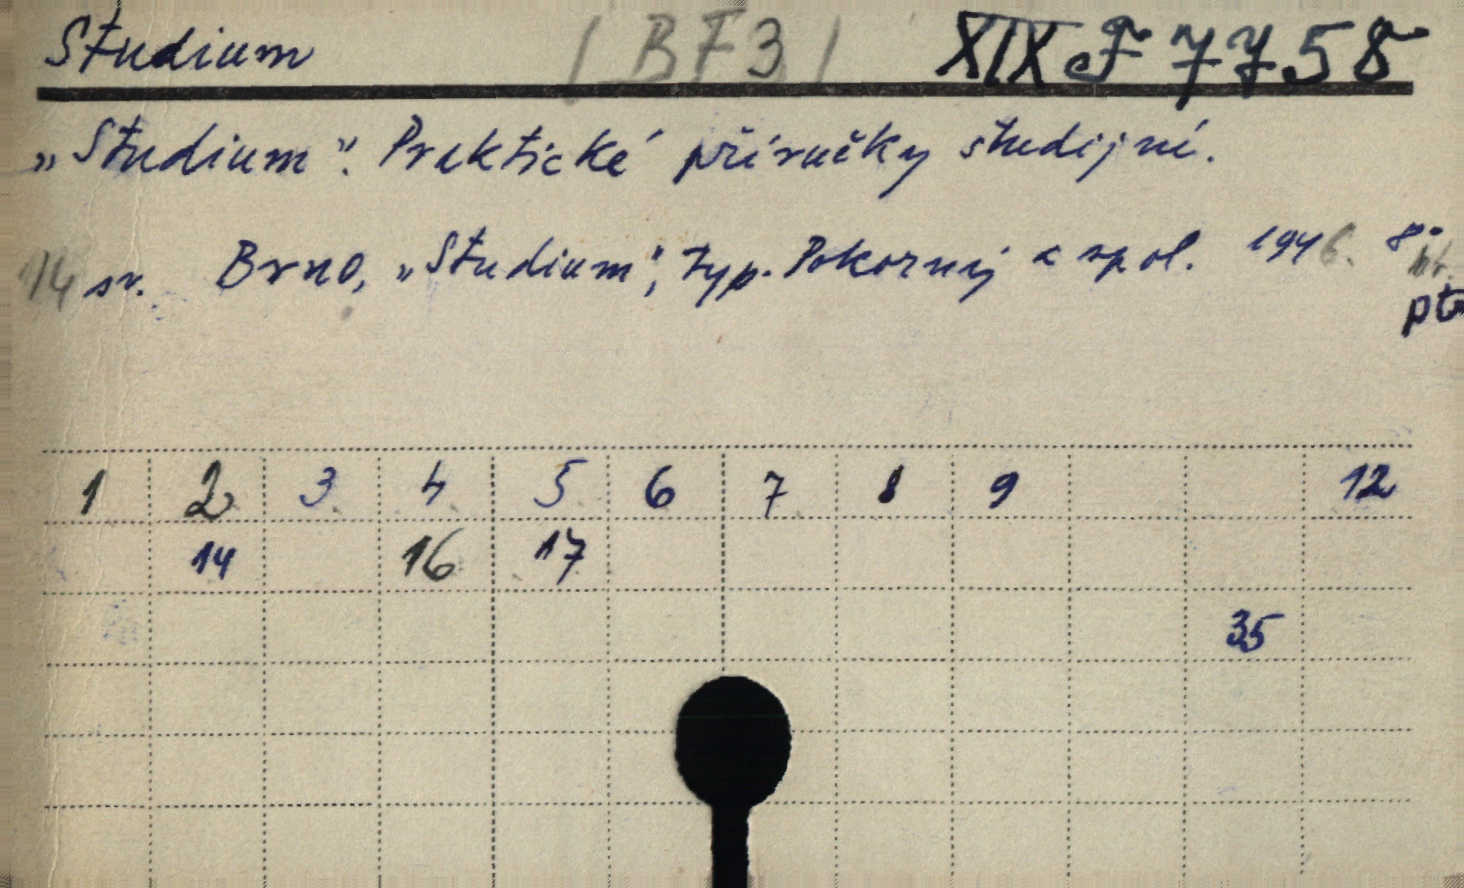 Studium | BF3 | XIX F 7758
„Studium“. Praktické příručky studijní.
14 sv. Brno, „Studium“, typ. Pokorný a spol. 1946. 8°
pt
1 2 3 4 5 6 7 8 9 12
14 16 17
35